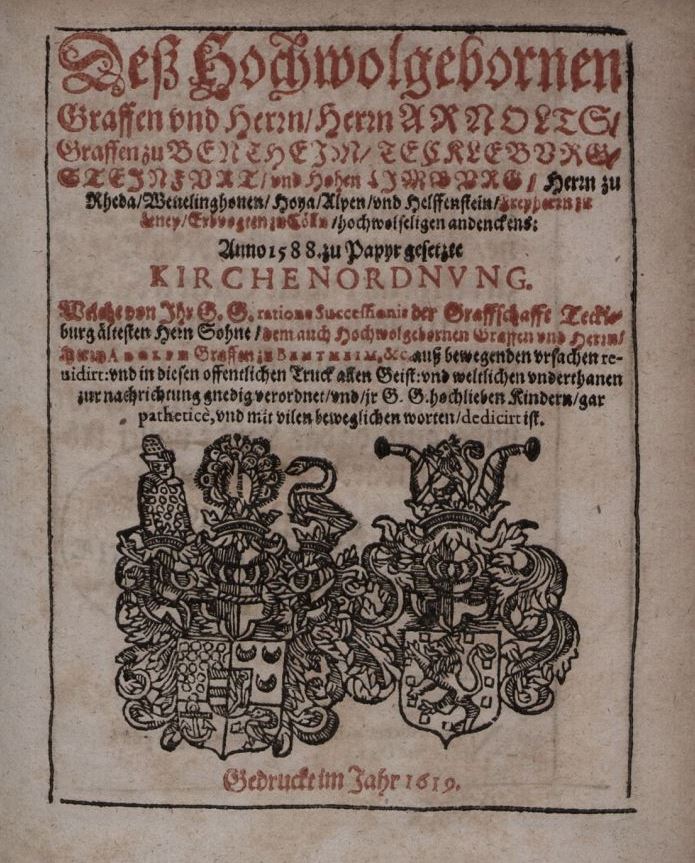 Deß Hochwolgebornen
Graffen vnd Herrn/Herrn ARNOLTS/
Graffen zu BENTHEIM/TECKLEBVRG/
STEINFVRT/vnd Hohen LIMBVRG/ Herrn zu
Rheda/Weuelinghouen/Hoya/Alpen/vnd Helffenstein/Freyherrn zu
Leney/Erbvogten zu Cöln/hochwolseligen andenckens:
Anno 1588. zu Papyr gesetzte
KIRCHENORDNVNG.
Welche von Ihr G. G. ratione Successionis der Graffschafft Teckle-
burg ältesten Hern Sohne/dem auch Hochwolgebornen Graffen vnd Herrn/
Herrn ADOLPH Graffen zu BENTHEIM,&c. auß bewegenden vrsachen re-
uidirt: vnd in diesen offentlichen Truck allen Geist: vnd weltlichen vnderthanen
zur nachrichtung gnedig verordnet/vnd/jr G. G. hochlieben Kindern/gar
patheticè, vnd mit vilen beweglichen worten/dedicirt ist.
Gedruckt im Jahr 1619.